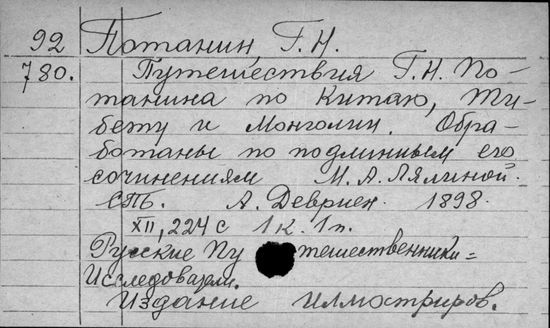 92 Потанин, Г. Н.
780. Путешествия Г. Н. По-
танина по Китаю, Ти-
бету и Монголии. Обра-
ботаны по подлинным его
сочинениям М. А. Лялиной.
СПб. А. Девриен. 1898.
XII, 224 с 1 к. 1 п.
Русские Пу тешественники=
Исследователи.
Издание иллюстриров.